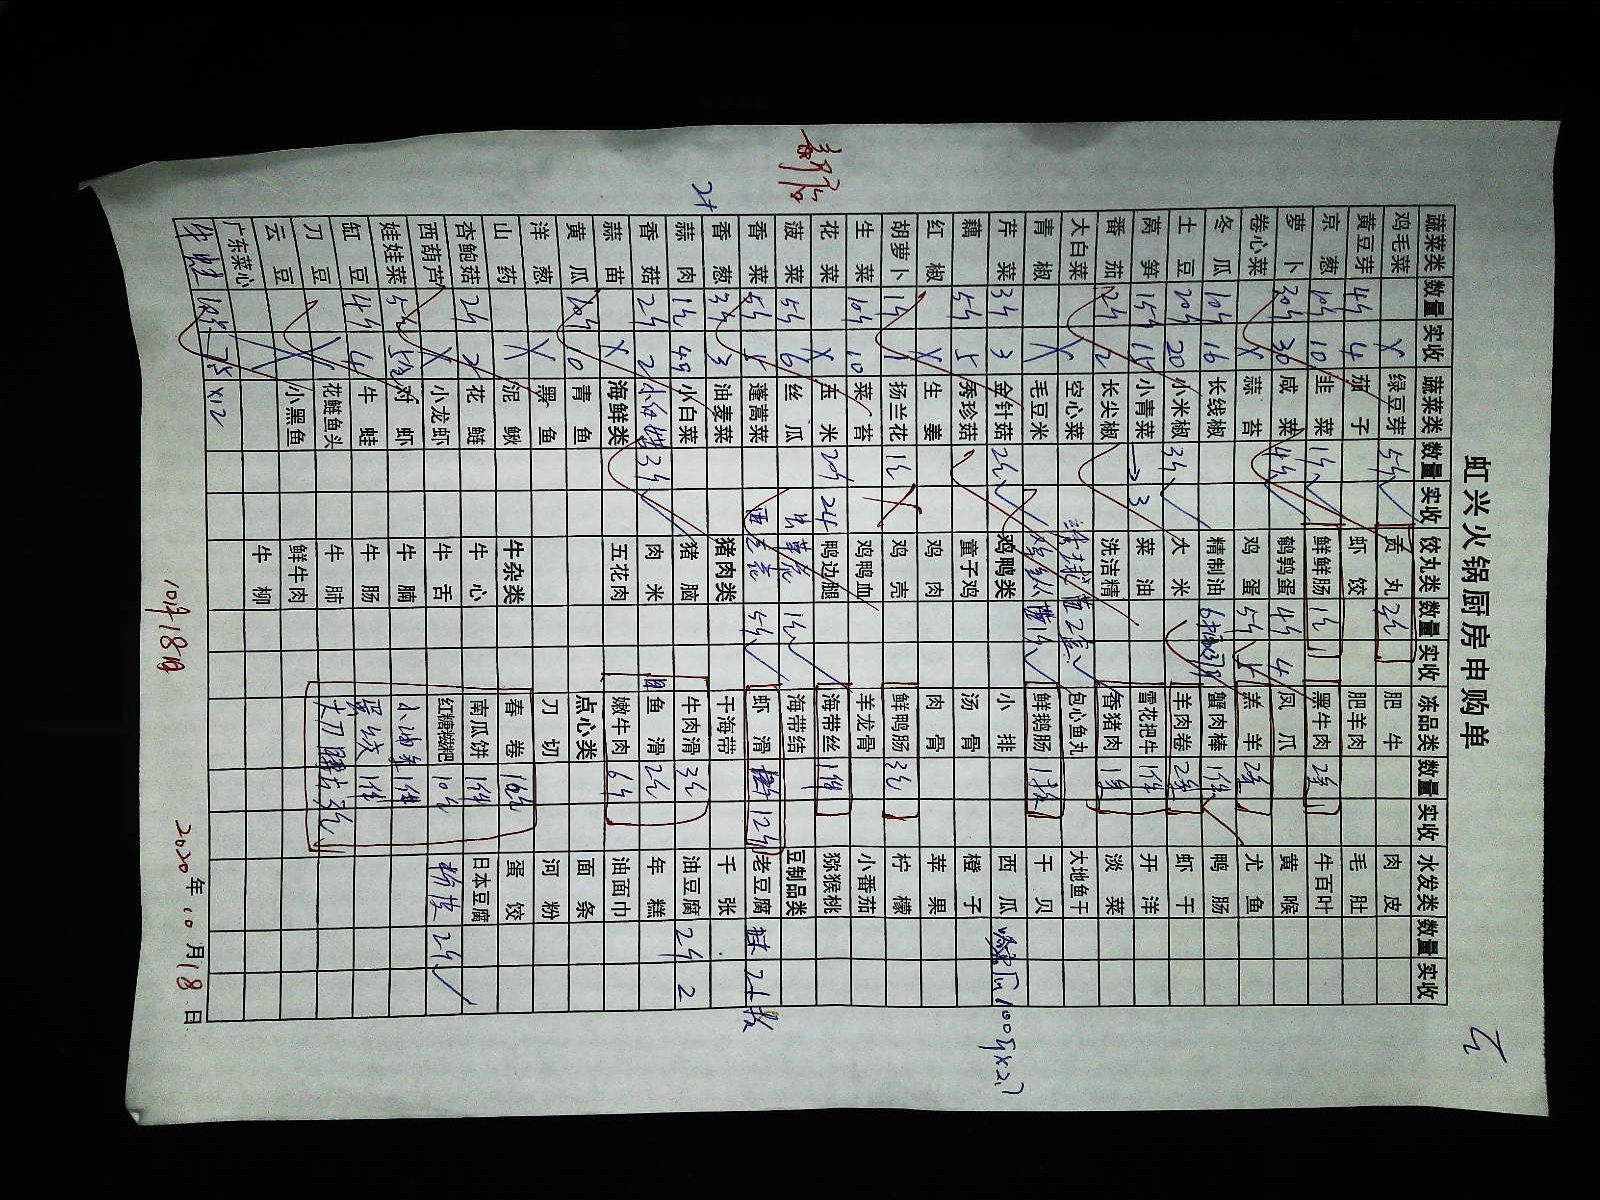 虹兴火锅厨房申购单
蔬菜类 数量 实收 蔬菜类 数量 实收 饺丸类 数量 实收 冻品类 数量 实收 水发类 数量 实收
鸡毛菜 X 绿豆芽 5斤 贡丸 2包 肥牛 肉皮
黄豆芽 4斤 4 茄子 虾饺 肥羊肉 毛肚
京葱 10斤 10 韭菜 1斤 鲜鲜肠 1包 黑牛肉 2条 牛百叶
萝卜 30斤 30 咸菜 4斤 鹌鹑蛋 4斤 4 凤爪 黄喉
卷心菜 X 蒜苔 鸡蛋 5斤 5 羔羊 2条 尤鱼
冬瓜 10斤 16 长线椒 精制油 蟹肉棒 1件 鸭肠
土豆 20斤 20 小米椒 3斤 大米 羊肉卷 2条 虾干
莴笋 15斤 15 小青菜 → 3 菜油 雪花把牛 1件 开洋
番茄 2斤 2 长尖椒 洗洁精 香猪肉 淡菜
大白菜 空心菜 包心鱼丸 大地鱼干
青椒 X 毛豆米 鲜鹅肠 干贝
芹菜 3斤 3 金针菇 2斤 鸡鸭类 小排 西瓜
藕 5斤 5 秀珍菇 童子鸡 汤骨 橙子
红椒 X 生姜 鸡肉 肉骨 苹果
胡萝卜 1斤 1 扬兰花 1斤 X 鸡壳 鲜鸭肠 3包 柠檬
生菜 10斤 10 菜苔 鸡鸭血 羊龙骨 小番茄
花菜 X 玉米 20斤 24 鸭边腿 海带丝 1件 猕猴桃
菠菜 5斤 6 丝瓜 海带结 豆制品类
香菜 5斤 5 蓬蒿菜 虾滑 12斤 老豆腐
香葱 3斤 3 油麦菜 猪肉类 干海带 千张
蒜肉 1斤 小白菜 猪脑 牛肉滑 3包 油豆腐 2斤 2
香菇 2斤 2 3斤 肉米 鱼滑 2包 年糕
蒜苗 X 海鲜类 五花肉 嫩牛肉 6斤 油面巾
黄瓜 10斤 10 青鱼 点心类 面条
洋葱 黑鱼 刀切 河粉
山药 X 泥鳅 牛杂类 春卷 蛋饺
杏鲍菇 2斤 2 花鲢 牛心 南瓜饼 1件 日本豆腐
西葫芦 X 小龙虾 牛舌 红糖糍粑 10包 2斤
娃娃菜 5斤 对虾 牛腩 小油条 1件
缸豆 4斤 4 牛蛙 牛肠 1件
刀豆 X 花鲢鱼头 牛肺
云豆 X 小黑鱼 鲜牛肉
广东菜心 牛柳
牛蛙 7.5x12
10月18日 2020年10月18日